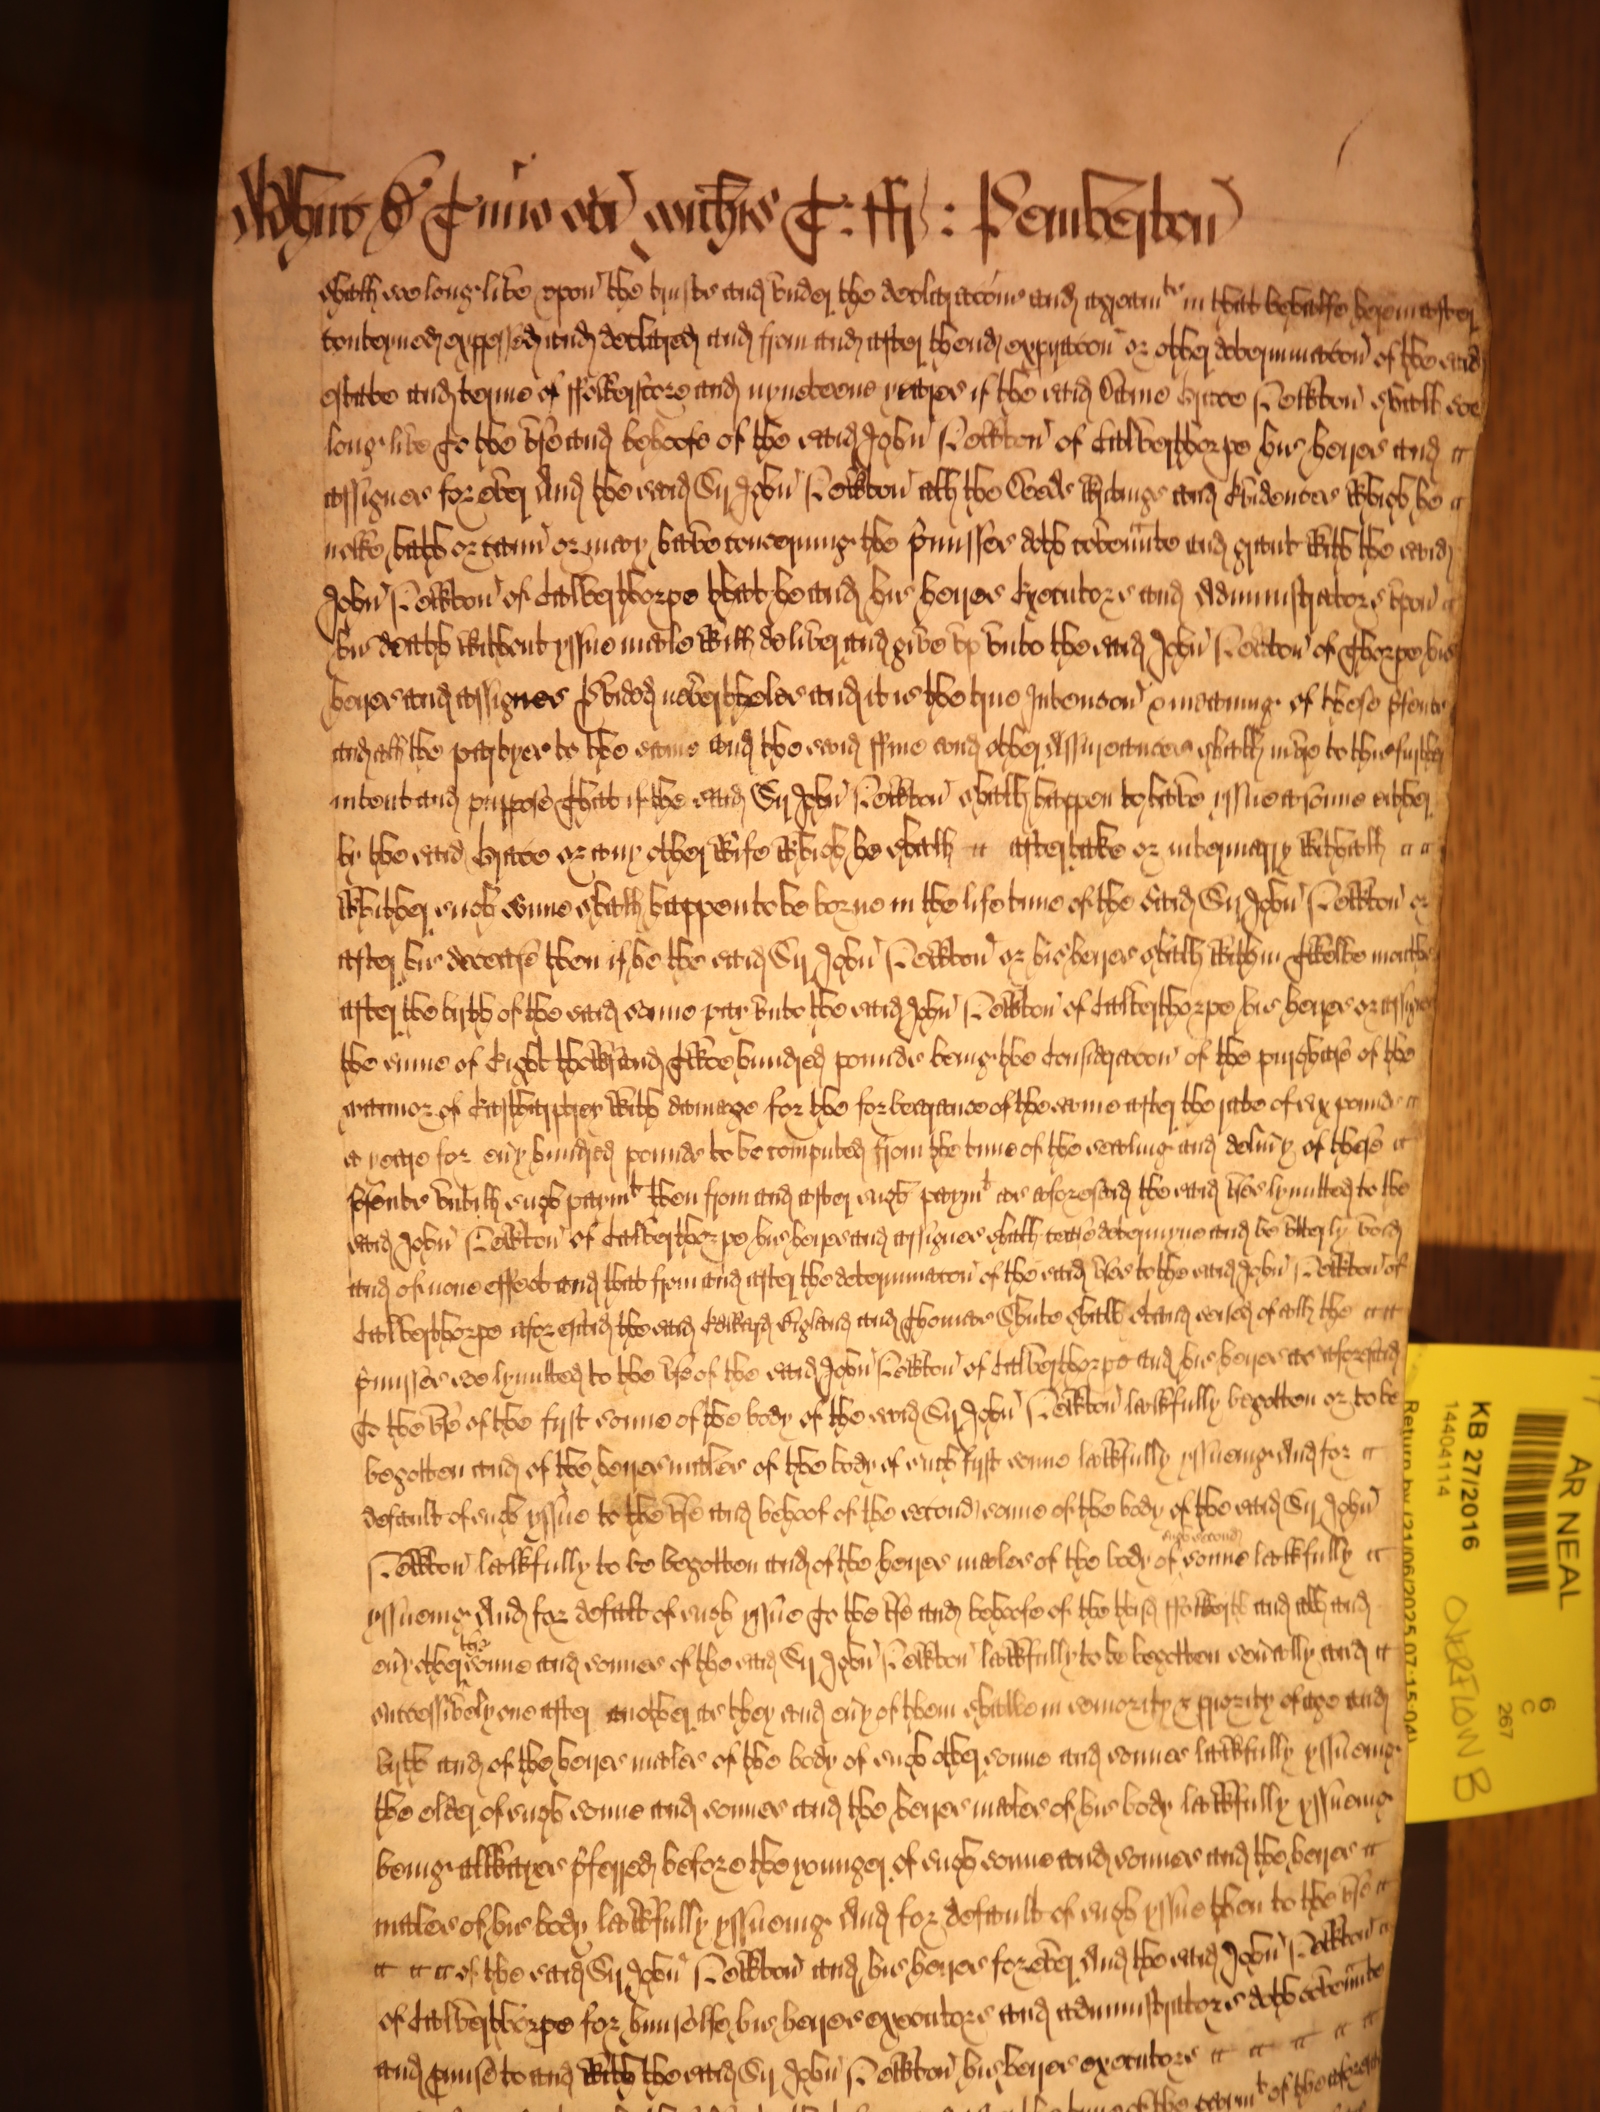 Adhuc de Pemberton
shall soe long live upon the truste and under the declaracōne and agreamts in that behalfe herein after
conteyned expressed and declared and from and after thend expiracon or other determinacon of the said
estate and terme of ffowerscore and nyneteene yeares if the said Dame Grace Newton shall soe
long live To the use and behoofe of the said John Newton of Culverthorpe his heires and
assignes for ever And the said Sir John Newton all the Deeds Writings and Evidences which he
nowe hath or cann or may have concerning the p̄misses doth covennte and graunt with the said
John Newton of Culverthorpe that he and his heires Executors and Administrators upon
his death without yssue male will deliver and give up unto the said John Newton of Thorpe his
heires and assignes P̄vided nevertheles and it is the true Intencon & meaning of these p̄sents
and all the partyes to the same and the said ffine and other Assureances shall inure to this further
intent and purpose That if the said Sir John Newton shall happen to have yssue a sonne either
by the said Grace or any other wife which he shall after take or intermarry withall
Whither such sonne shall happen to be borne in the life tyme of the said Sir John Newton or
after his decease then if he the said Sir John Newton or his heires shall within Twelve monthes
after the birth of the said sonne pay unto the said John Newton of Culverthorpe his heires or assignes
the sume of Eight thowsand Twoe hundred pounds being the Consideracon of the purchase of the
mannor of with damage for the forbearance of the same after the rate of six pounds
a yeare for ev̄y hundred pounds to be computed from the tyme of the sealing and deliv̄y of these
p̄sents untill such paymt then from and after such paymt as aforesaid the said uses lymitted to the
said John Newton of Culverthorpe his heires and assignes shall cease determyne and be utterly void
and of none effect and that from and after the determinacon of the said uses to the said John Newton of
Culverthorpe aforesaid the said Edward and Thomas Shute shall stand seised of all the
p̄misses soe lymitted to the use of the said John Newton of Culverthorpe and his heires as aforesaid
To the use of the first sonne of the body of the said Sir John Newton lawfully begotten or to be
begotten and of the heires males of the body of such first sonne lawfully yssueing And for
default of such yssue to the use and behoof of the second sonne of the body of the said Sir John
Newton lawfully to be begotten and of the heires males of the body of such second sonne lawfully
yssueing And for default of such yssue To the use and behoofe of the third ffowerth and all and
ev̄y other the sonne and sonnes of the said Sir John Newton lawfully to be begotten sev̄ally and
successively one after another as they and ev̄y of them shalbe in seniority & priority of age and
birth and of the heires males of the body of such other sonne and sonnes lawfully yssueing
the elder of such sonne and sonnes and the heires males of his body lawfully yssueing
being allwayes p̄ferred before the younger of such sonne and sonnes and the heires
males of his body lawfully yssueing And for default of such yssue then to the use
of the said Sir John Newton and his heires for ever And the said John Newton
of Culverthorpe for himselfe his heires executors and administrators doth covennte
and p̄mise to and with the said Sir John Newton his heires executors
tyme of the paymt of the aforesaid
AR NEAL
KB 27/2016
14404114
Return by (21/06/2025 07:15:04)
OVERFLOW B
6
C
267